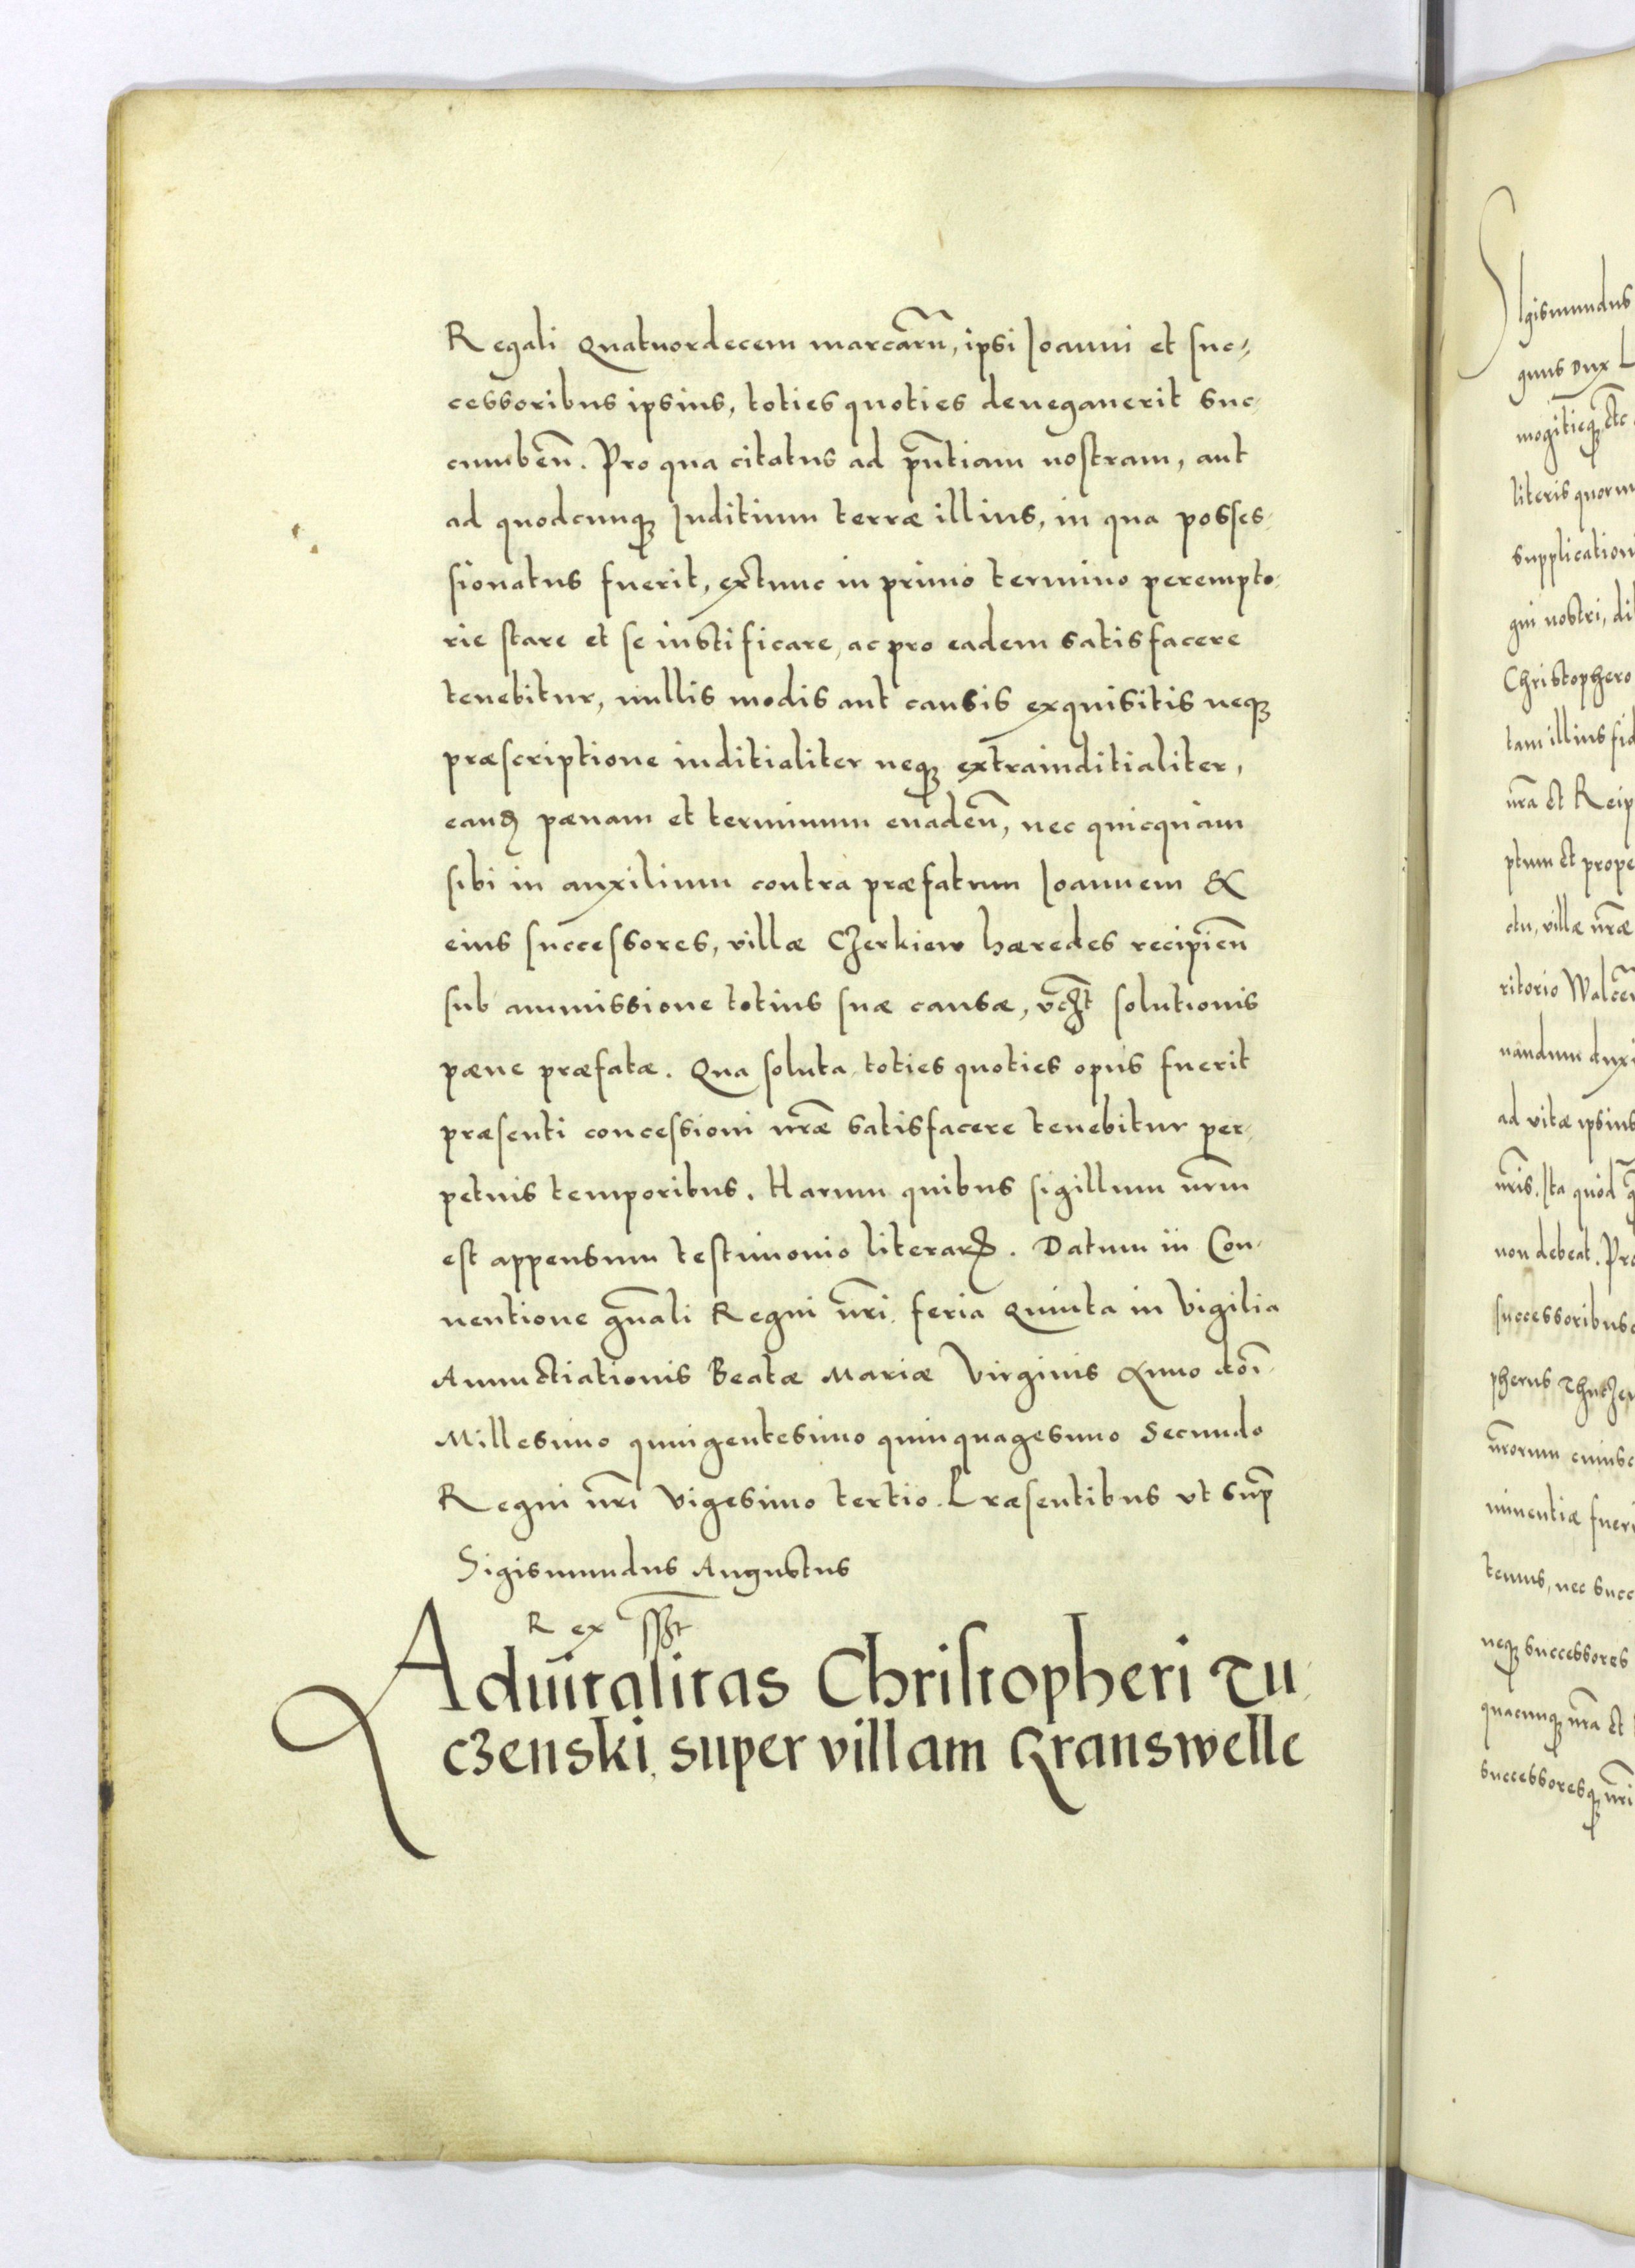 Regali Quatuordecem marcarũ, ipsi Joanni et suc-
cessoribus ipsius, toties quoties denegauerit suc-
cumbeñ. Pro qua citatus ad pñtiam nostram, aut
ad quodcunqȝ Juditium terræ illius, in qua posses-
sionatus fuerit, extunc in primo termino perempto-
rie stare et se iustificare, ac pro eadem satisfacere
tenebitur, nullis modis aut causis exquisitis neqȝ
præscriptione iuditialiter neqȝ extraiuditialiter,
eandȝ pænam et terminum euadeñ, nec quicquam
sibi in auxilium contra præfatum Joannem &
eius successores, villæ Czerkiew hæredes recipieñ
sub ammissione totius suæ causæ,       solutionis
pæne præfatæ. Qua soluta, toties quoties opus fuerit
præsenti concessioni nr̃æ satisfacere tenebitur per-
petuis temporibus. Harum quibus sigillum nr̃m
est appensum testimonio literarꝝ. Datum in Con-
uentione gñali Regni nr̃i feria Quinta in Vigilia
Annuctiationis Beatæ Mariæ Virginis Anno dõi
Millesimo quingentesimo quinquagesimo Secundo
Regni nr̃i Vigesimo tertio. Præsentibus vt sup̃
Sigismundus Augustus
Rex sszt
Aduitalitas Christopheri Tu-
czenski super villam Granswelle
Sigismundus
gnus Dux L
mogitieqȝ etc
literis quorum
supplicationi
gni nostri, di
Christophero
tam illius fid
nr̃a et Reip
ptum et prope
ctu, villæ nr̃æ
ritorio Walcen
nandum duxi
ad vitæ ipsius
nr̃is. Ita quod
non debeat. Pro
successoribus
pherus Thucze
nr̃orum cuius
minentiæ fueri
temus, nec succ
neqȝ successores
quacunqȝ nr̃a et
successoresqȝ nr̃i